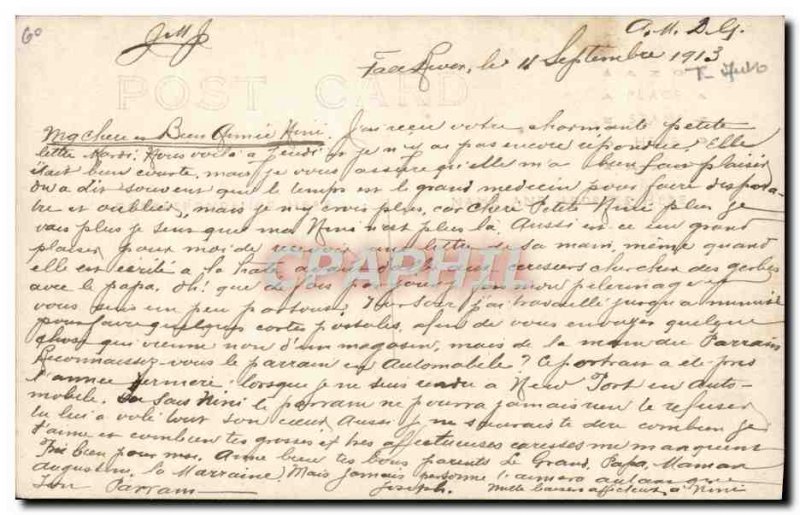 60
J M J
A. M. D. G.
Fall River, le 11 Septembre 1913
POST CARD
Ma Chère et Bien Aimée Nini. J'ai reçu votre charmante petite
lettre Mardi. Nous voilà à Jeudi et je n'y ai pas encore répondue! Elle
était bien courte, mais je vous assure qu'elle m'a bien fait plaisir
On a dit souvent que le temps est le grand medecin pour faire disparai-
tre et oublier, mais je n'y crois plus, car chère Petite Nini plus je
vais plus je sens que ma Nini n'est plus là. Aussi est ce un grand
plaisir pour moi de recevoir une lettre de sa main, même quand
elle est écrite à la hate avant d'aller aux cerisiers chercher des gerbes
avec le papa. Oh! que de fois par jour mon pelerinage
vous suis un peu partout! Hier soir j'ai travaillé jusqu'à minuit
pour faire quelques cartes postales, afin de vous envoyer quelque
chose qui vienne non d'un magasin, mais de la main du Parrain
Reconnaissez-vous le parrain en Automobile? Ce portrait a été pris
l'année dernière lorsque je me suis rendu à New Port en Auto-
mobile. Tu sais Nini le parrain ne pourra jamais rien te refuser
tu lui a volé tout son cœur. Aussi je ne saurais te dire combien je
t'aime et combien tes grosses et très affectueuses caresses me manquent
Prie bien pour moi. Aime bien tes bons parents Le Grand Papa, Maman
Augustine, la Marraine. Mais jamais personne t'aimera autant que
Ton Parrain Joseph. Mille baisers affectueux à Nini
CPAPHIL